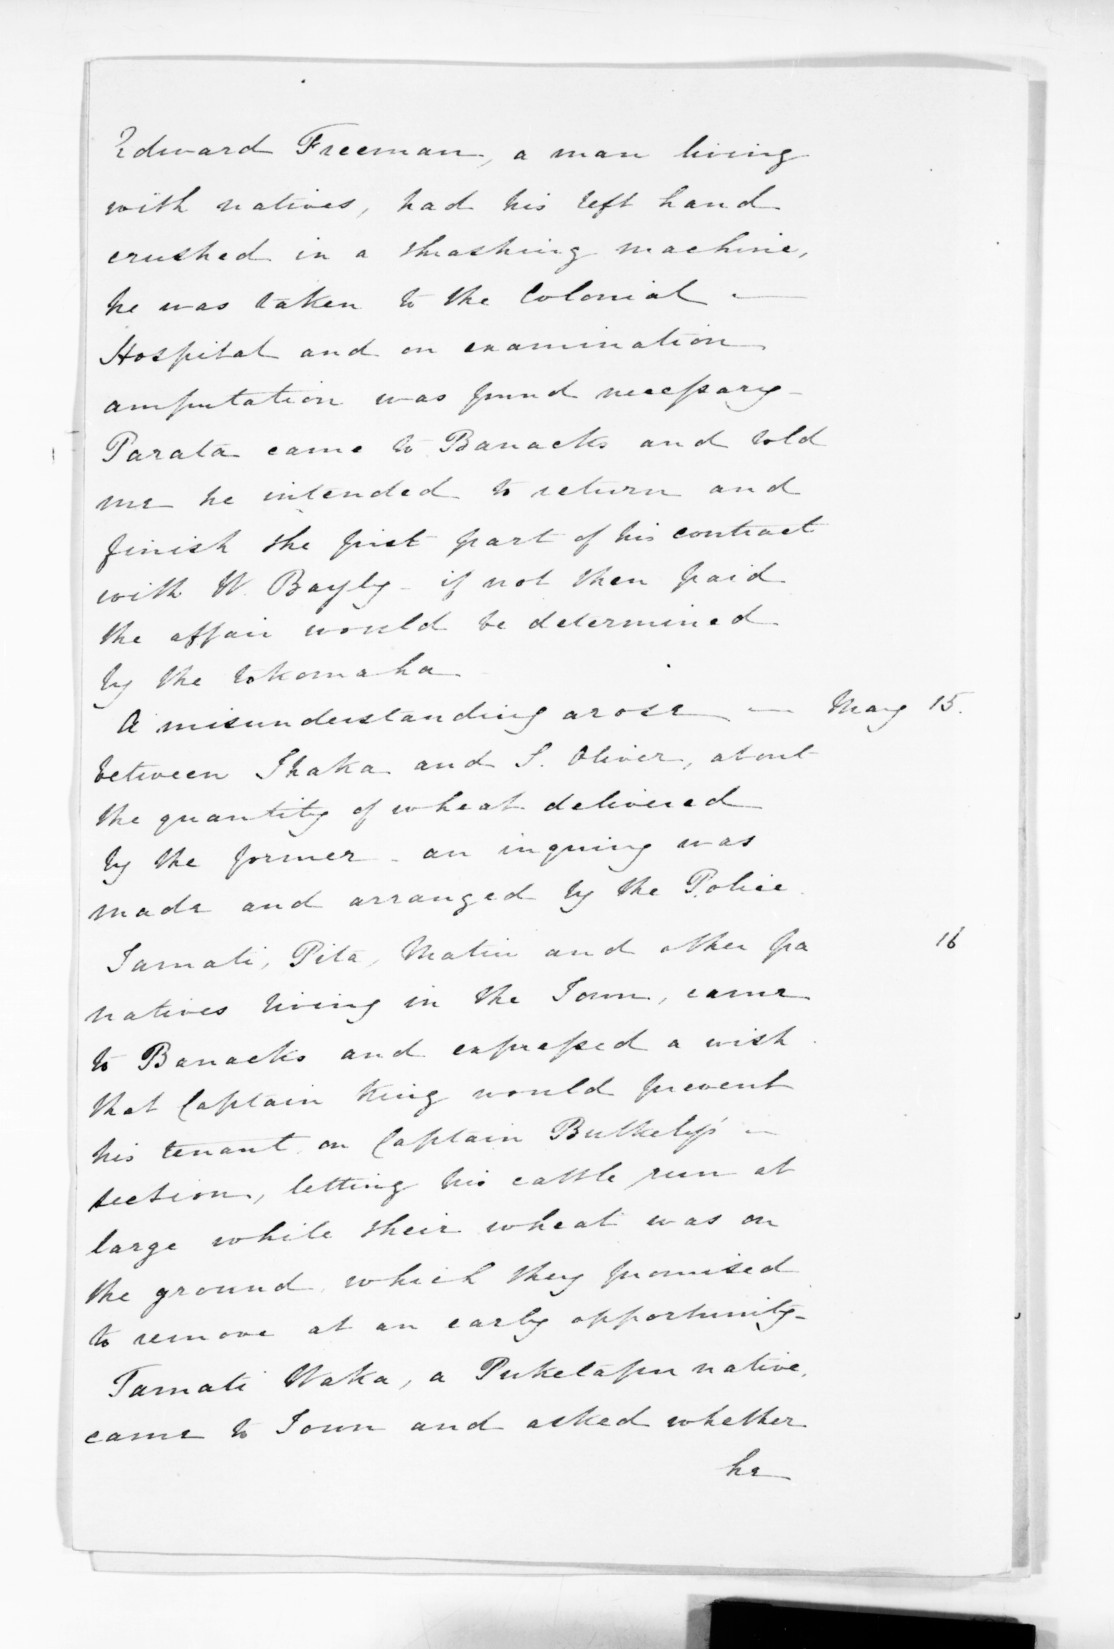 Edward Freeman, a man living
with natives, had his left hand
crushed in a thrashing machine,
he was taken to the Colonial —
Hospital and on examination
amputation was found necessary –
Parata came to Banacks and told
me he intended to return and
finish the first part of his contract
with W. Bayly – if not then paid
the affair would be determined
by the tokomaha
A misunderstanding arose — May 15.
between Ihaka and S. Oliver, about
the quantity of wheat delivered
by the former – an inquiry was
made and arranged by the Police.
Tamati, Pita, Matiu and other pa 16
natives living in the Town, came
to Banacks and expressed a wish
that Captain King would prevent
his tenant on Captain Bulkely's –
section, letting his cattle run at
large while their wheat was on
the ground, which they promised
to remove at an early opportunity –
Tamati Waka, a Puketapu native,
came to Town and asked whether
he